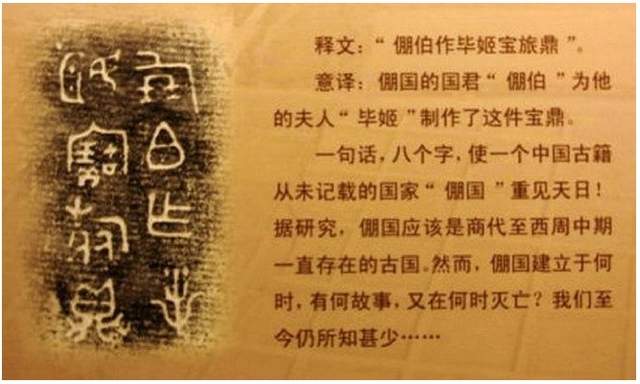 倗白乍畢
姬寶旅鼎
释文：“倗伯作毕姬宝旅鼎”。
意译：倗国的国君“倗伯”为他
的夫人“毕姬”制作了这件宝鼎。
一句话，八个字，使一个中国古籍
从未记载的国家“倗国”重见天日！
据研究，倗国应该是商代至西周中期
一直存在的古国。然而，倗国建立于何
时，有何故事，又在何时灭亡？我们至
今仍所知甚少……